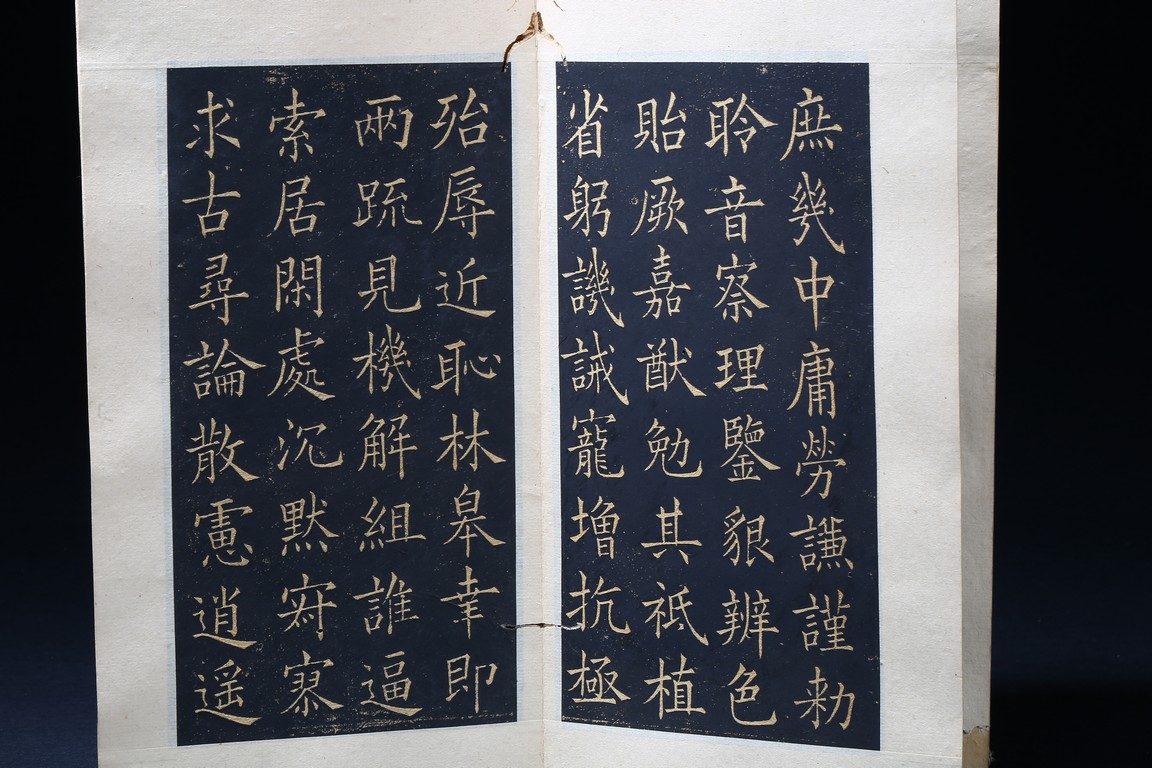 庶幾中庸勞謙謹勑
聆音察理鑒貌辨色
貽厥嘉猷勉其祗植
省躬譏誡寵增抗極
殆辱近恥林皋幸即
兩疏見機解組誰逼
索居閑處沉默寂寥
求古尋論散慮逍遥